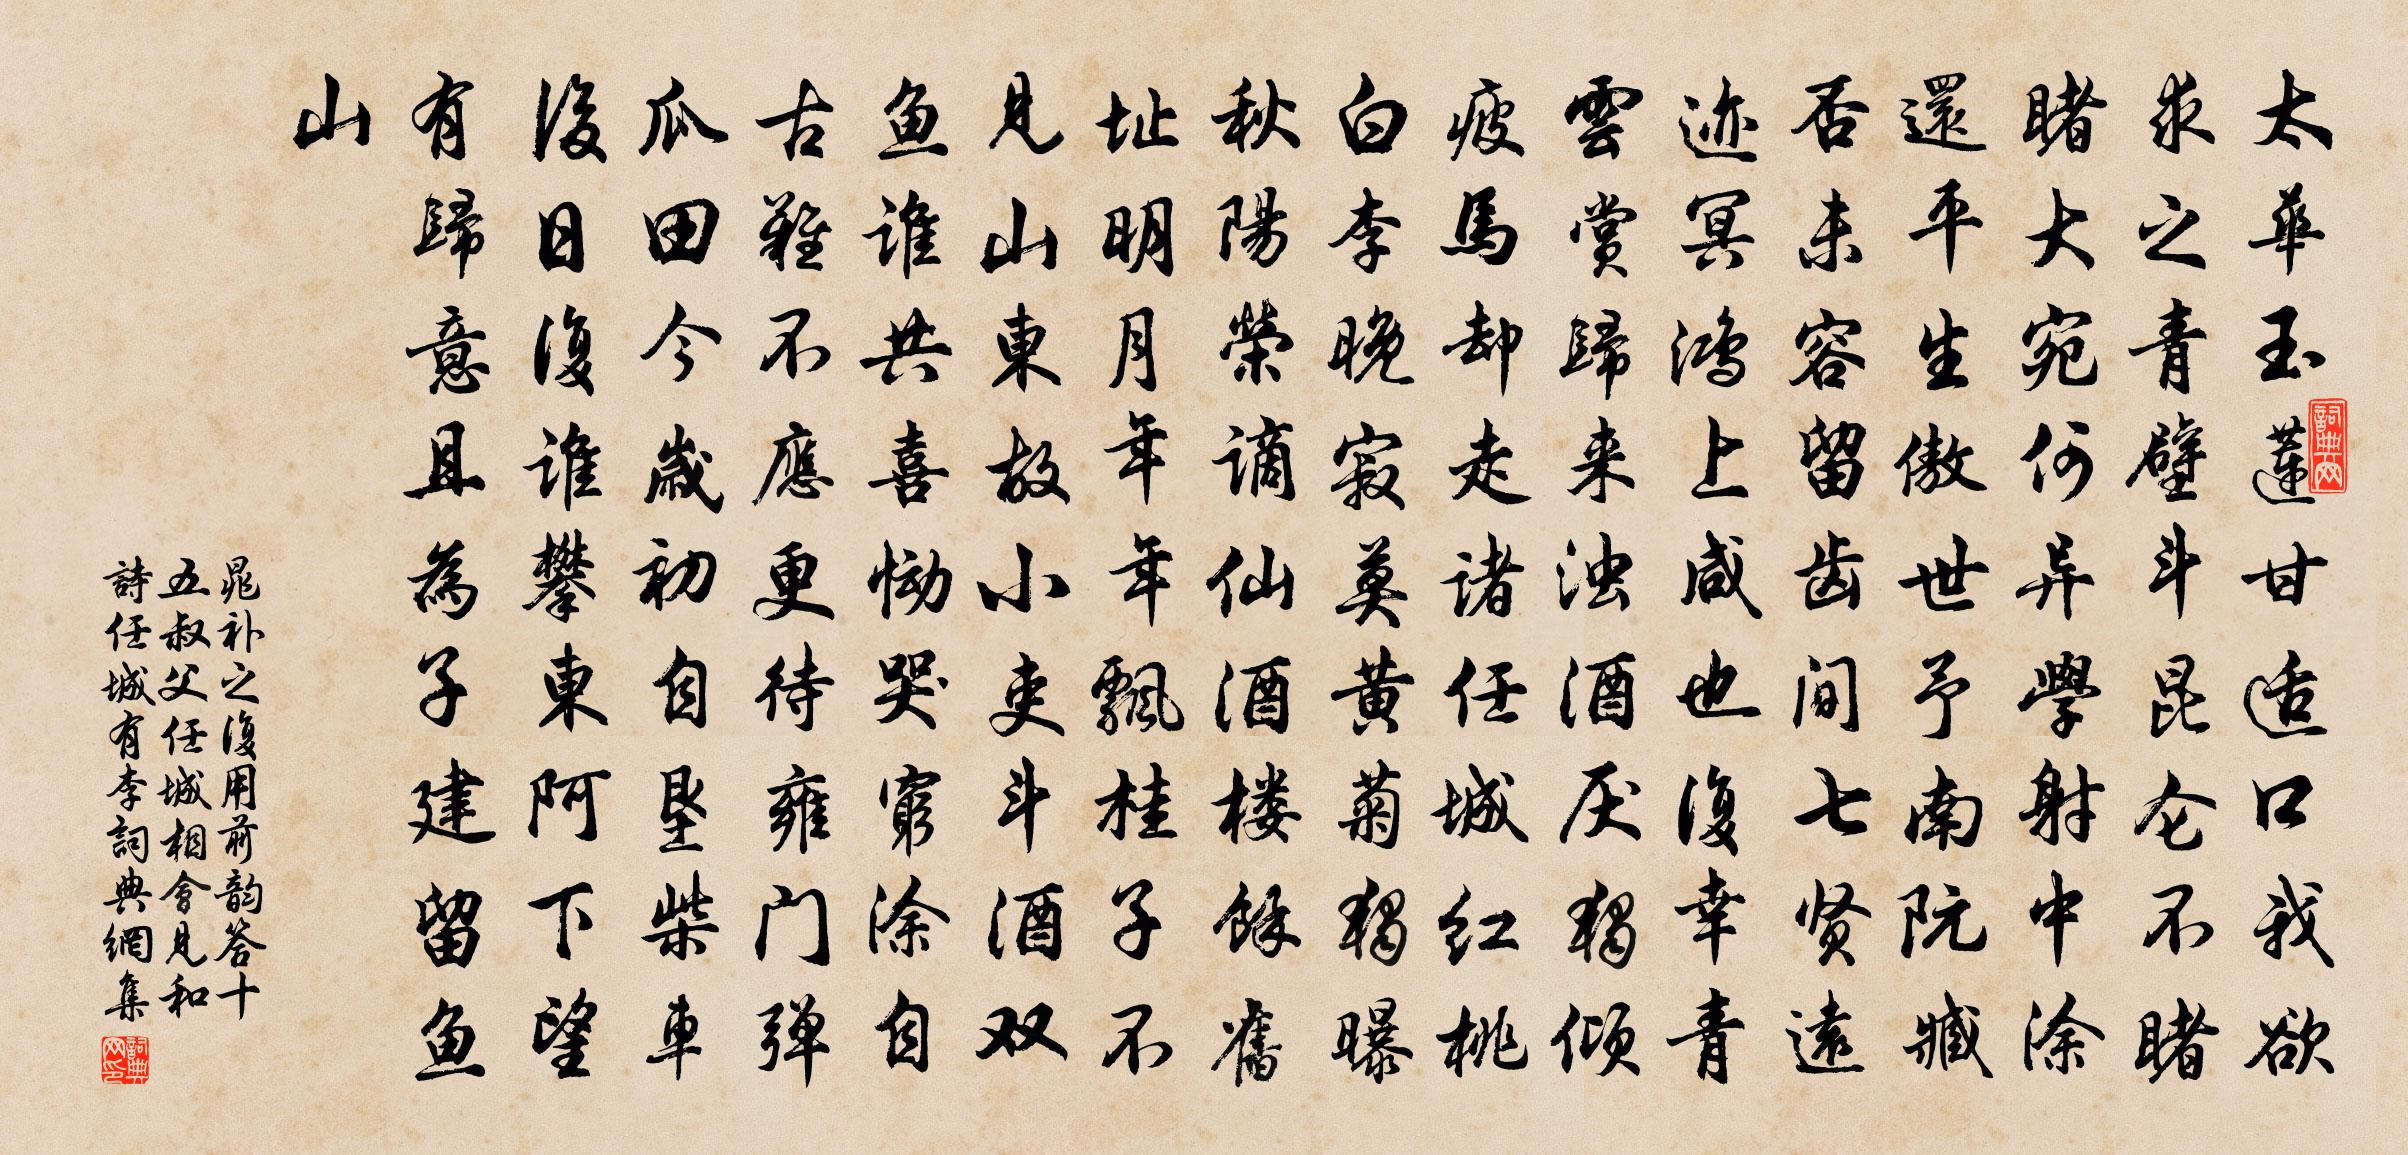 太華玉蓮甘适口我欲
求之青壁斗昆仑不睹
睹大宛何异學射中涂
還平生傲世予南阮臧
否未容留齿间七贤遠
迹冥鸿上咸也復幸青
雲赏歸来浊酒厌独倾
疲馬却走诸任城红桃
白李晚寂莫黄菊独曝
秋陽榮谪仙酒楼餘舊
址明月年年飘桂子不
見山東故小吏斗酒双
鱼谁共喜恸哭窮涂自
古難不應更待雍门弹
瓜田今歲初自垦柴車
後日復谁攀東阿下望
有歸意且為子建留鱼
山
晁补之復用前韵答十
五叔父任城相會見和
詩任城有李詞典網集
詞典网
詞典网印